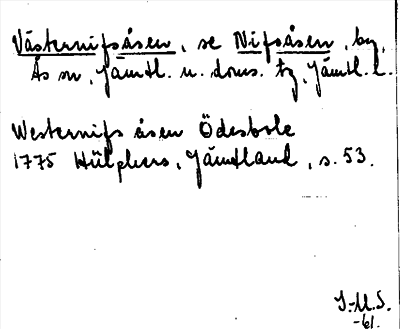 Västernifsåsen, se Nifsåsen, by,
Ås sn, Jämtl. n. doms. tg, Jämtl. l.
Westernifs åsen Ödesbole
1775 Hülphers, Jämtland, s. 53.
I.-M.S.
-61.